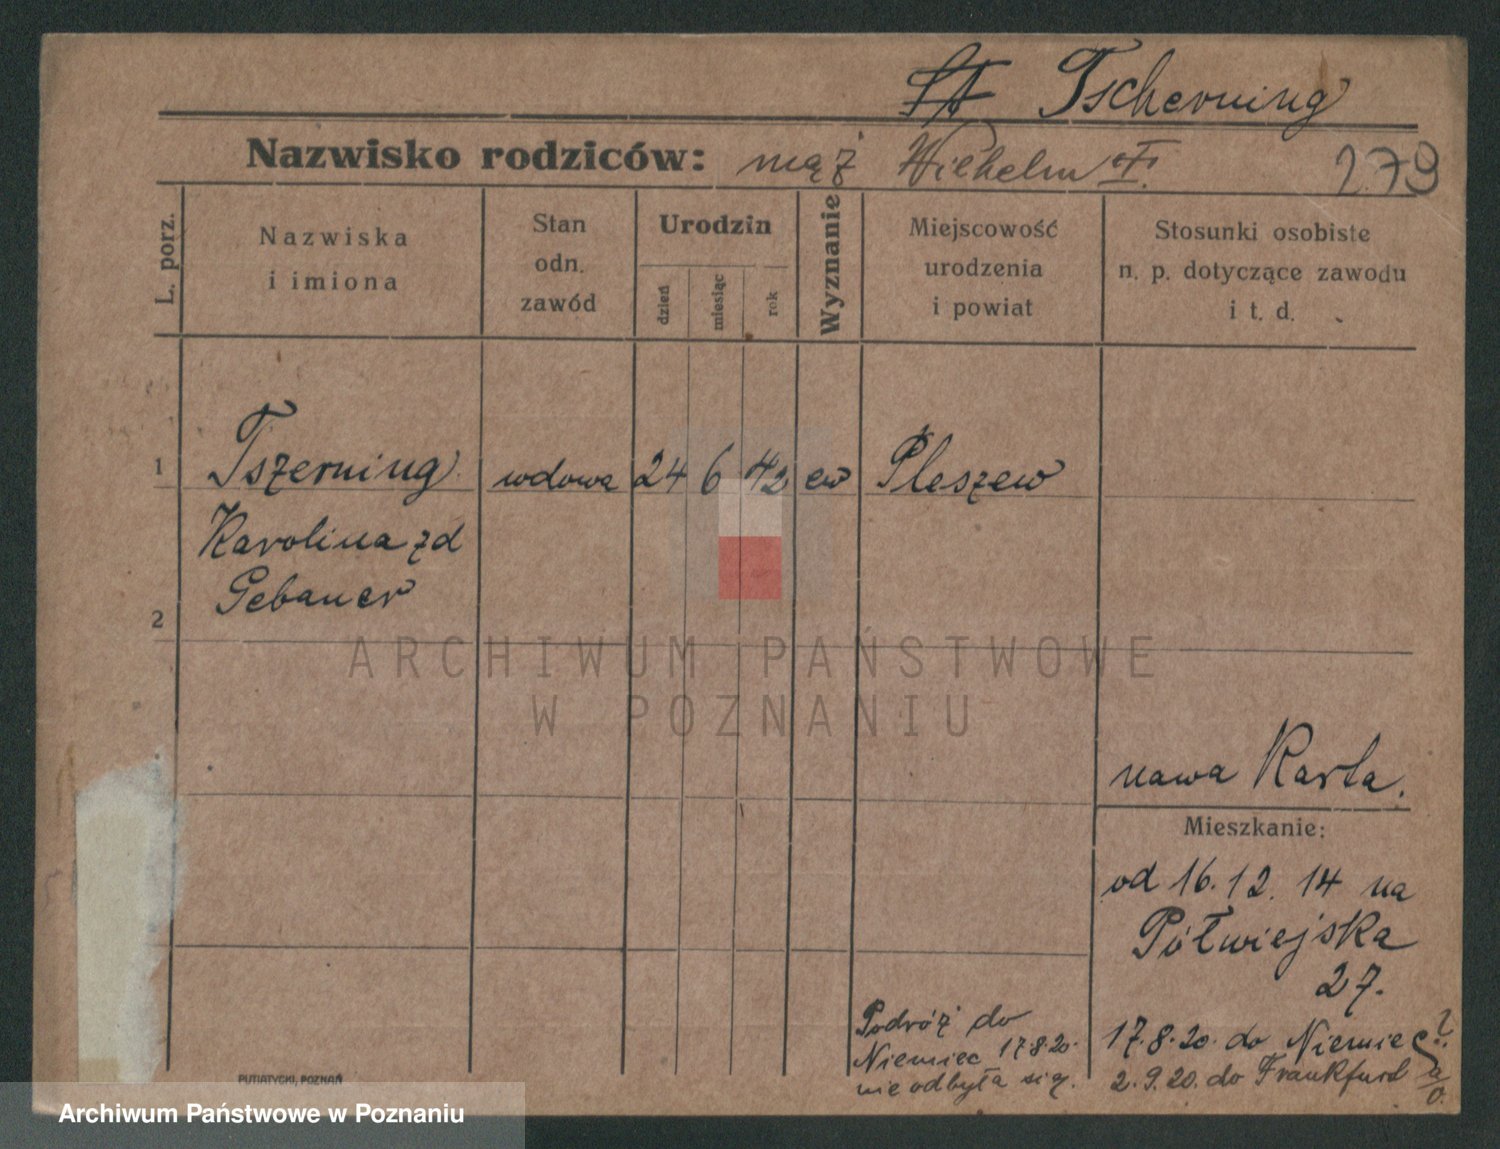 Tscherning
Nazwisko rodziców: mąż Wilhelm
279
L. porz.
Nazwiska
i imiona
Stan
odn.
zawód
Urodzin
dzień
miesiąc
rok
Wyznanie
Miejscowość
urodzenia
i powiat
Stosunki osobiste
n. p. dotyczące zawodu
i t. d.
1 Tszerning wdowa 24 6 42 ew Pleszew
Karolina zd
Gebauer
2
ARCHIWUM PAŃSTWOWE
W POZNANIU
nowa Karta.
Mieszkanie:
od 16.12.14 na
Półwiejska
27.
17.8.20. do Niemiec
2.9.20. do Frankfurt
a/o.
Podróż do
Niemiec 17.8.20.
nie odbyła się.
PUTIATYCKI, POZNAŃ
Archiwum Państwowe w Poznaniu